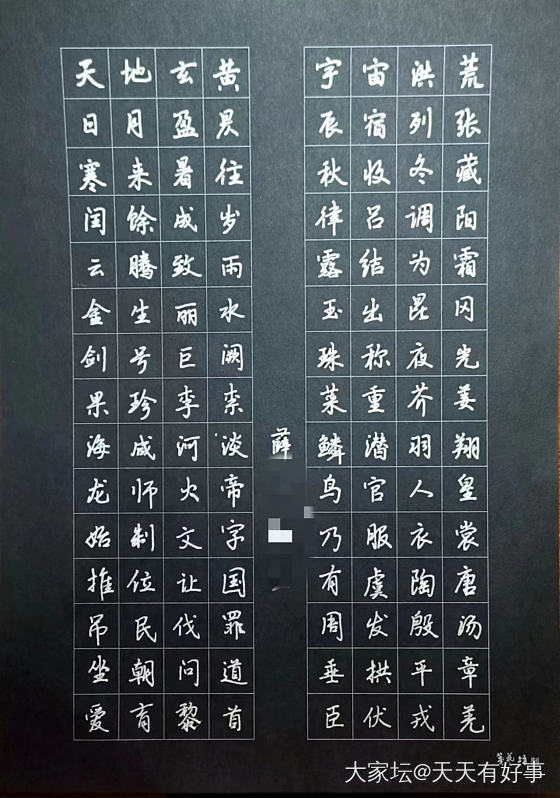 天地玄黄 宇宙洪荒
日月盈昃 辰宿列张
寒来暑往 秋收冬藏
闰馀成岁 律吕调阳
云腾致雨 露结为霜
金生丽水 玉出昆冈
剑号巨阙 珠称夜光
果珍李柰 菜重芥姜
海咸河淡 鳞潜羽翔
龙师火帝 鸟官人皇
始制文字 乃服衣裳
推位让国 有虞陶唐
吊民伐罪 周发殷汤
坐朝问道 垂拱平章
爱育黎首 臣伏戎羌
薛
大家坛@天天有好事